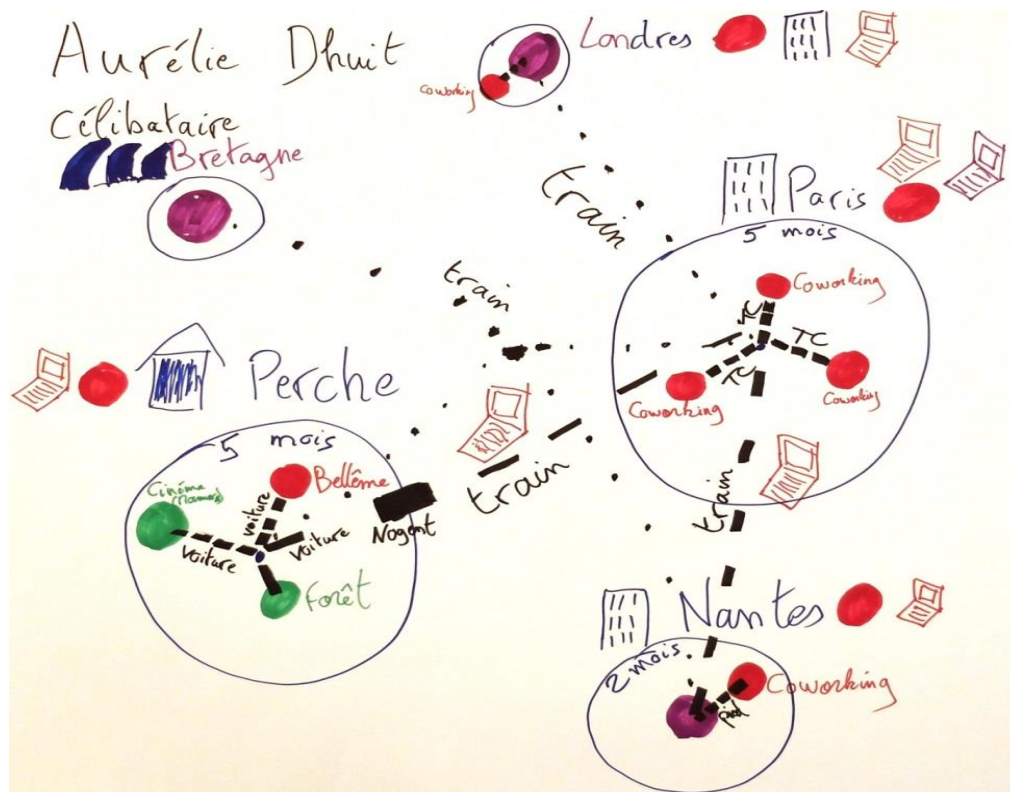 Aurélie Dhuit
Célibataire
Bretagne
Londres
Coworking
train
train
Paris
5 mois
Coworking
TC
TC
TC
Coworking
Coworking
Perche
5 mois
Cinéma
Bellême
voiture
voiture
voiture
Nogent
Forêt
train
train
Nantes
2 mois
Coworking
pied